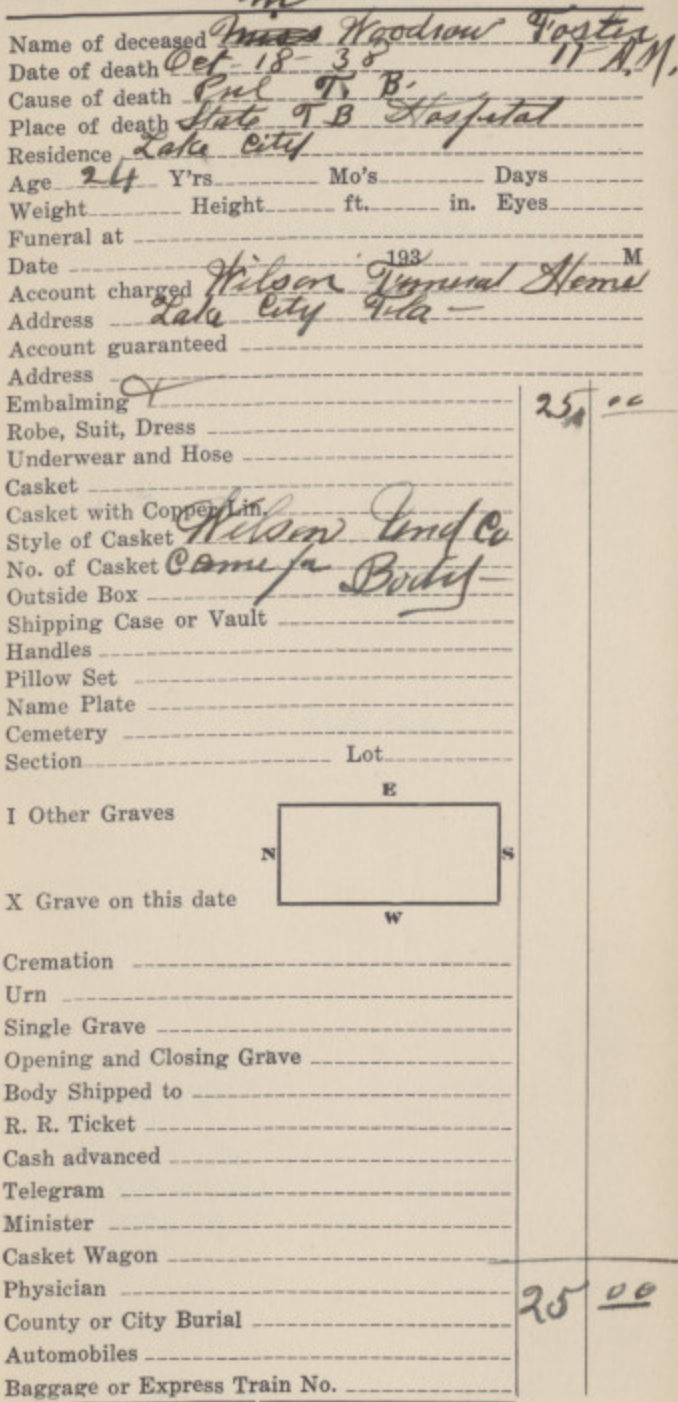 Name of deceased Miss Woodrow Foster
Date of death Oct-18-38 11 A.M.
Cause of death Pul T. B.
Place of death State T B Hospital
Residence Lake City
Age 24 Y'rs Mo's Days
Weight Height ft. in. Eyes
Funeral at
Date 193 M
Account charged Wilson Funeral Home
Address Lake City Fla -
Account guaranteed
Address
Embalming X 25 00
Robe, Suit, Dress
Underwear and Hose
Casket
Casket with Copper Lin.
Style of Casket Wilson Und Co
No. of Casket Came for Body -
Outside Box
Shipping Case or Vault
Handles
Pillow Set
Name Plate
Cemetery
Section Lot
E
I Other Graves
N S
X Grave on this date
W
Cremation
Urn
Single Grave
Opening and Closing Grave
Body Shipped to
R. R. Ticket
Cash advanced
Telegram
Minister
Casket Wagon
Physician 25 00
County or City Burial
Automobiles
Baggage or Express Train No.